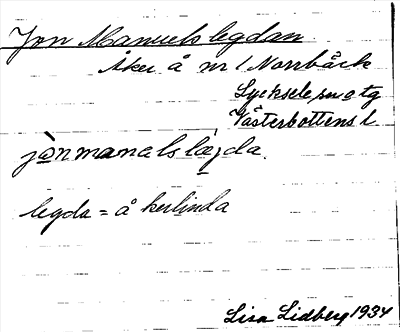 Jon Manuelslegdan
Åker å nr 1 Norrbäck
Lycksele sn o tg
Västerbottens l
jònmanalslæ̀gda.
legda = å kerlinda
Lisa Lidberg 1934